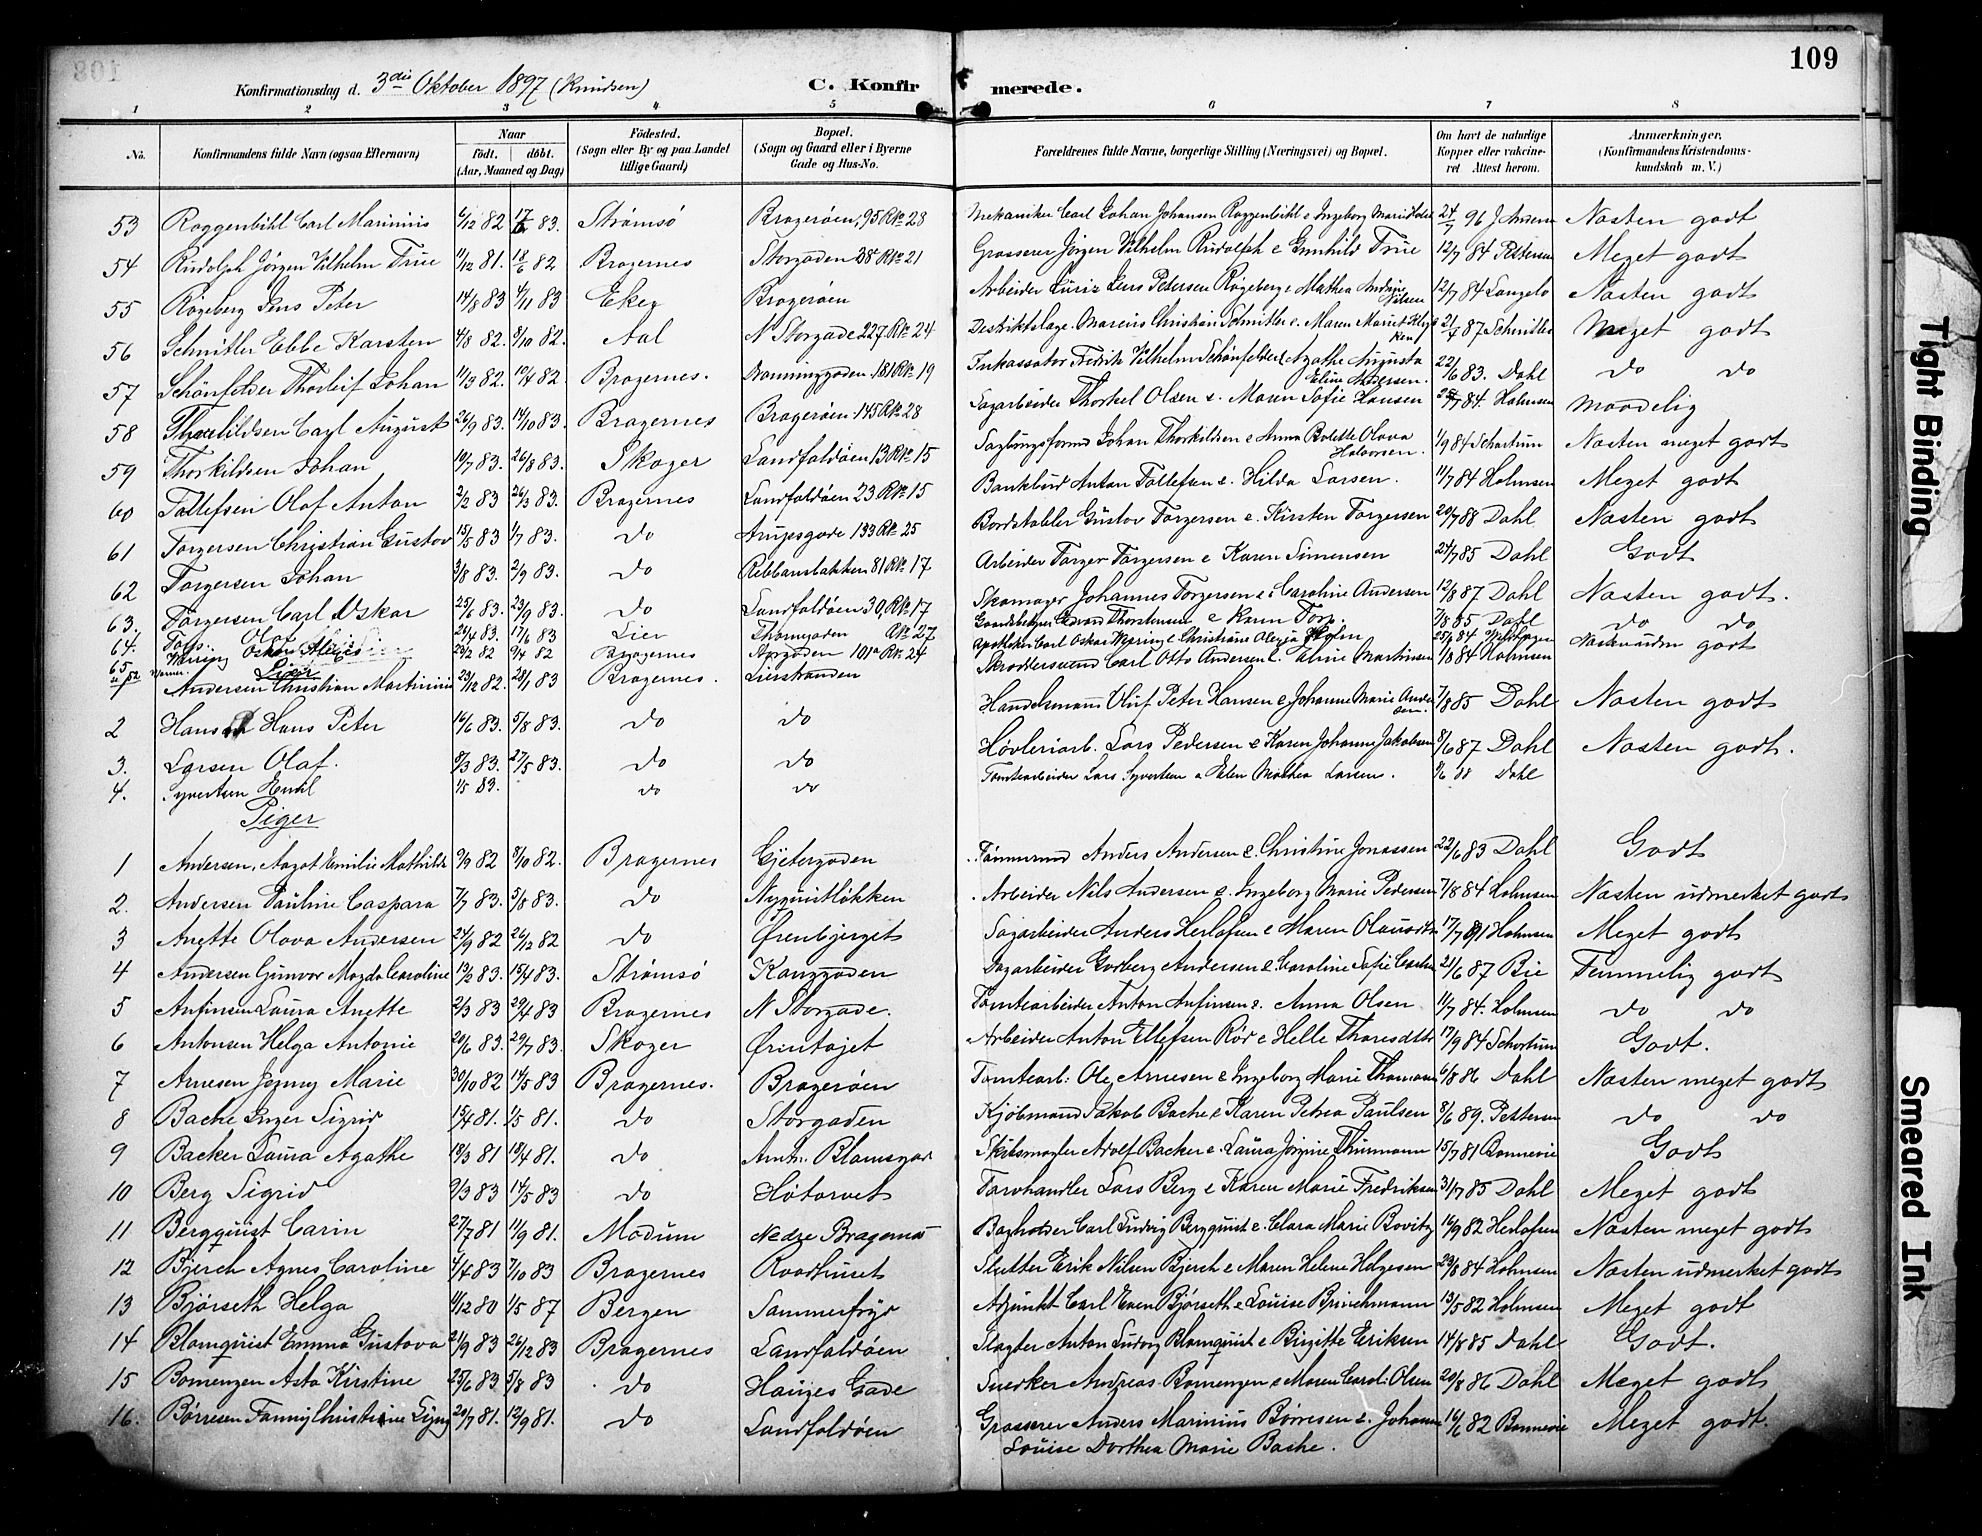 109
Konfirmationsdag d. 3die Oktober 1897 (Knudsen) C. Konfirmerede.
1 2 3 4 5 6 7 8
No. Konfirmandens fulde Navn (ogsaa Efternavn) Naar født. døbt. (Aar, Maaned og Dag) Fødested. (Sogn eller By og paa Landet tillige Gaard) Bopæl. (Sogn og Gaard eller i Byerne Gade og Hus-No. Forældrenes fulde Navne, borgerlige Stilling (Næringsvei) og Bopæl. Om havt de naturlige Kopper eller vakcineret Attest herom. Anmærkninger. (Konfirmandens Kristendomskundskab m. V.)
53 Roggenbihl Carl Marinius 6/12 82 83. Strømsø Bragerøen, 95 Rk 28 Mekaniker Carl Johan Johansen Roggenbihl e Ingeborg 96 Næsten godt
54 Rudolph Jørgen Vilhelm True 11/12 81. 18/6 82 Bragernes Storgaden 38 Rk 21 Grosserer Jørgen Vilhelm Rudolph e Gunhild True 12/7 84 Pettersen Meget godt
55 Røgeberg Jens Peter 14/8 83 4/11 83 Eker Bragerøen Arbeider Lauriz Jens Petersen Røgeberg e Mathea Andrine Nilsen 12/7 84 Langelo Næsten godt
56 Schnitler Ebbe Karsten 4/8 82. 8/10 82. Aal N Storgade 227 Rk 24 Destriktslæge Marcus Christian Schnitler e. Maren 87 Schnitler Meget godt
57 Schönfelder Thorleif Johan 11/3 82. 10/4 82. Bragernes. 181 Rk 19 Inkassator Fredrik Vilhelm Schönfelder e Agathe Augusta Eline Andersen. 22/6 83. Dahl do do
58 Carl August 26/9 83. 14/10 83. Bragernes Bragerøen 145 Rk 28 Sagarbeider Thorkel Olsen e. Maren Sofie Hansen 84. Holmsen Maadelig
59 Thorkildsen Johan 10/7 83. 26/8 83. Skoger Landfaldøen 13 Rk 15 Johan Thorkildsen e Anna Bolette Olava Halvorsen. 1/9 84 Schartum Næsten meget godt
60 Tollefsen Olaf Anton 2/2 83 26/3 83. Bragernes Landfaldøen 23 Rk 15 Bankbud Anton Tollefsen e. Hilda Larsen. 11/7 84 Holmsen Meget godt
61 Torgersen Christian Gustav 15/5 83 1/7 83. do Arupsgade 133 Rk 25 Bordstabler Gustav Torgersen e. Kirsten Torgersen 20/7 88 Dahl Næsten godt
62 Torgersen Johan 3/8 83. 2/9 83. do Rebbansbakken 81 Rk 17 Arbeider Torger Torgersen e Karen Simensen 24/7 85 Dahl Godt
63. Torgersen Carl Oskar 25/6 83. 23/9 83. do Landfaldøen 30, Rk 17 Skomager Johannes Torgersen e. Caroline Andersen 12/8 87 Dahl Næsten godt.
64. Torp. 83. 17/6 83 Lier Thornegaden Rk 27. Gaardbruger Thorstensen e Karen Torp. 7/8 85 Dahl do do
65 Wæring Oskar 23/2 82 9/4 82 Bragernes 101a Rk 24 Apotheker Carl Oskar Wæring e Christiane 25/6 84
Lier
Andersen Christian Martinius 23/12 82. 28/1 83 Bragernes. Lierstranden Skræddersvend Carl Otto Andersen e. Eline Martinsen 1/8 84 Holmsen godt
2 Hansen Hans Peter 16/6 83. 5/8 83. do do Handelsmand Oluf Peter Hansen e. Johanne Marie Andersen. 7/8 85 Dahl Næsten godt
3. Larsen Olaf. 8/3 83. 27/5 83. do do Høvleriarb. Lars Pedersen e Karen Johanne Jakobsen 8/6 87 Dahl Næsten godt.
4. Syvertsen Emil 1/5 83. do do Tomtearbeider Lars Syvertsen e Elen Mathea Larsen. 9/6 88 Dahl
Piger
1 Andersen, Aagot Emilie Mathilde 9/9 82 8/10 82. Bragernes Gjetergaden Tømmermd Anders Andersen e. Christine Jonassen 22/6 83 Dahl Godt
2. Andersen Pauline Caspara 7/7 83. 5/8 83. do Nyquistløkken Arbeider Nils Andersen e. Ingeborg Marie Pedersen 7/8 84 Holmsen Næsten udmerket godt
3 Anette Olava Andersen 24/9 82 26/12 82 do Ørenbjerget Sagarbeider Anders Herlofsen e Maren Olausdtr 17/7 Holmsen Meget godt
4 Andersen Gunvor Magda Caroline 13/2 83. 15/4 83. Strømsø Kanggaden Sagarbeider Andersen e. Caroline Sofie 21/6 87 Bie Temmelig godt
5 Anfinsen Laura Anette 2/3 83 29/4 83 Bragernes N Storgade. Tomtearbeider Anton Anfinsen e. Anna Olsen 11/7 84. Holmsen do do
6 Antonsen Helga Antonie 20/6 83. 29/7 83. Skoger Ørentajet Arbeider Anton Ellefsen Rør e Helle Thoresdtr 17/9 84 Schartum Godt.
7 Arnesen Jenny Marie 30/10 82 14/5 83 Bragernes. Bragerøen Tomtearb: Ole Arnesen e Ingeborg Marie Thomasen 6/8 86 Dahl Næsten meget godt
8 Bache Inger Sigrid 15/4 81. 1/5 81. do Storgaden Kjøbmand Jakob Bache e Karen Petrea Paulsen 8/6 89. Pettersen do do
9 Backer Laura Agathe 13/3 81 18/4 81. do Amtm. Blomsgad Skibsmægler Adolf Backer e. Laura Jorgine Thurmann 15/7 81 Bonnevie Godt
10 Berg Sigrid 9/3 83 14/5 83 do Høtorvet Farvhandler Lars Berg e Karen Marie Fredriksen 31/7 85 Dahl Meget godt
11 Bergquist Carin 27/7 81 11/9 81. Modum Nedre Bragernes Bagholder Carl Ludvig Bergquist e. Clara Marie Bovitz 16/9 82 Herlofsen Næsten meget godt
12 Bjerch Agnes Caroline 4/4 83 7/10 83 Bragernes Raadhuset Slutter Erik Nilsen Bjerch e Maren Helene Helgesen 23/6 84 Holmsen Næsten udmerket godt
13 Bjørseth Helga 11/12 80 1/5 87 Bergen Sommerfryd Adjunkt Carl Even Bjørseth e Louise Brinchmann 13/5 82 Holmsen Meget godt
14 Blomquist Emma Gustava 21/9 83 26/12 83 Bragernes Landfaldøen Slagter Anton Ludvig Blomquist e Birgitte Eriksen 14/8 85 Dahl Godt.
15 Bomengen Asta Kirstine 25/6 83 5/8 83 do Hauges Gade Snerker Andreas Bomengen e Maren Carol: Olsen 20/8 86 Dahl Meget godt
16. Børresen Fanny Christiane Lyng 20/7 81. 12/9 81. do Landfaldøen Grosserer Anders Marinius Børresen e. Johanne 16/6 82 Bonnevie Meget godt.
Louise Dorthea Marie Bache.
Tight Binding
Smeared Ink